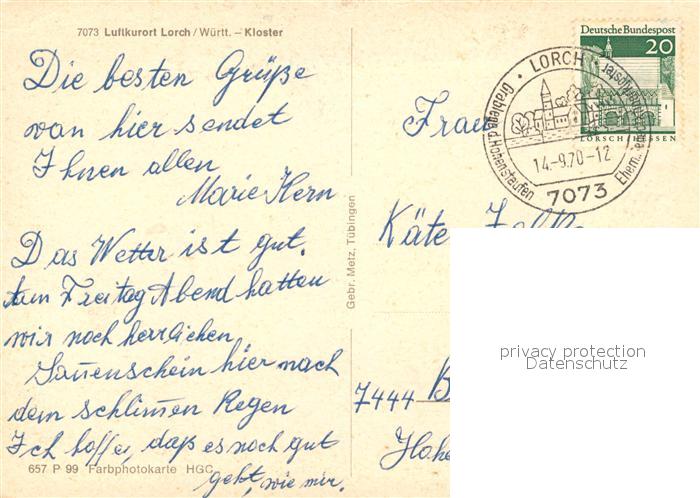 7073 Luftkurort Lorch / Württ. – Kloster
Die besten Grüße
von hier sendet
Ihnen allen
Marie Kern
Das Wetter ist gut.
am Freitag Abend hatten
wir noch herrlichen
Sonnenschein hier nach
dem schlimen Regen
Ich hoffe, daß es noch gut
geht, wie mir.
657 P 99 Farbphotokarte HGC
Gebr. Metz, Tübingen
Deutsche Bundespost
20
LORSCH / HESSEN
LORCH
Grablege d. Hohenstaufen
14.-9.70-12
7073
Frau
Käte
7444 B
Hohe
privacy protection
Datenschutz